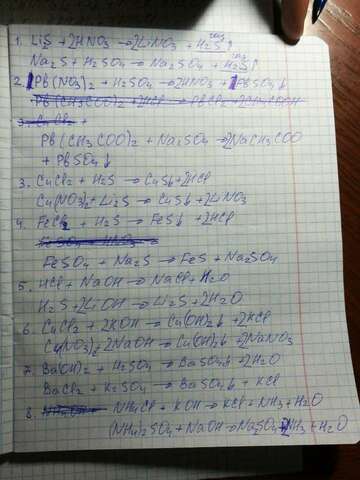 1. LiS + 2HNO3 → 2LiNO3 + H2S↑
Na2S + H2SO4 → Na2SO4 + H2S↑
2. Pb(NO3)2 + H2SO4 → 2HNO3 + PbSO4↓
Pb(CH3COO)2 + 2HCl → PbCl2 + 2CH3COOH
3. CuCl2 +
Pb(CH3COO)2 + Na2SO4 → 2NaCH3COO
+ PbSO4↓
3. CuCl2 + H2S → CuS↓ + 2HCl
Cu(NO3)2 + Li2S → CuS↓ + 2LiNO3
4. FeCl2 + H2S → FeS↓ + 2HCl
FeSO4 + Na2S → FeS + Na2SO4
5. HCl + NaOH → NaCl + H2O
H2S + 2LiOH → Li2S + 2H2O
6. CuCl2 + 2KOH → Cu(OH)2↓ + 2KCl
Cu(NO3)2 + 2NaOH → Cu(OH)2↓ + 2NaNO3
7. Ba(OH)2 + H2SO4 → BaSO4↓ + 2H2O
BaCl2 + K2SO4 → BaSO4↓ + KCl
8. NH4Cl + KOH → KCl + NH3 + H2O
(NH4)2SO4 + NaOH → Na2SO4 + 2NH3 + H2O